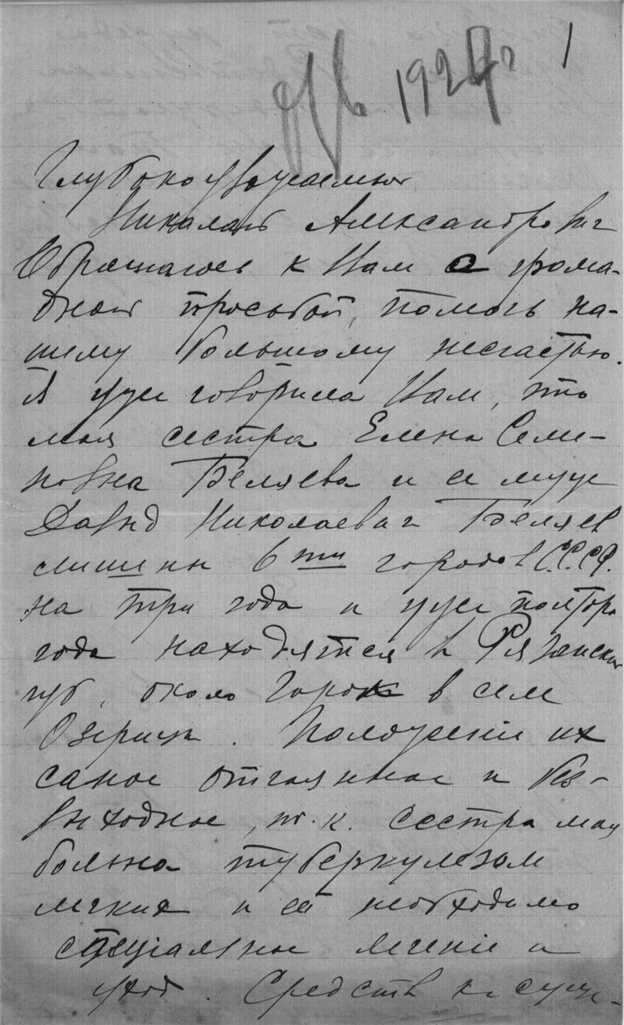 1924 г 1
Глубокоуважаемый
Николай Александрович
Обращаюсь к Вам с грома-
дной просьбой, помочь на-
шему большому несчастью.
Я уже говорила Вам, что
моя сестра Елена Семе-
новна Беляева и ее муж
Давид Николаевич Беляев
лишены 6ти городов С.С.С.Р.
на три года и уже полтора
года находятся в Рязанской
губ, около в селе
Озерицы. Положеніе их
самое отчаянное и без-
выходное, т.к. сестра моя
больна туберкулезом
легких и ей необходимо
специальное леченіе и
уход. Средств к суще-